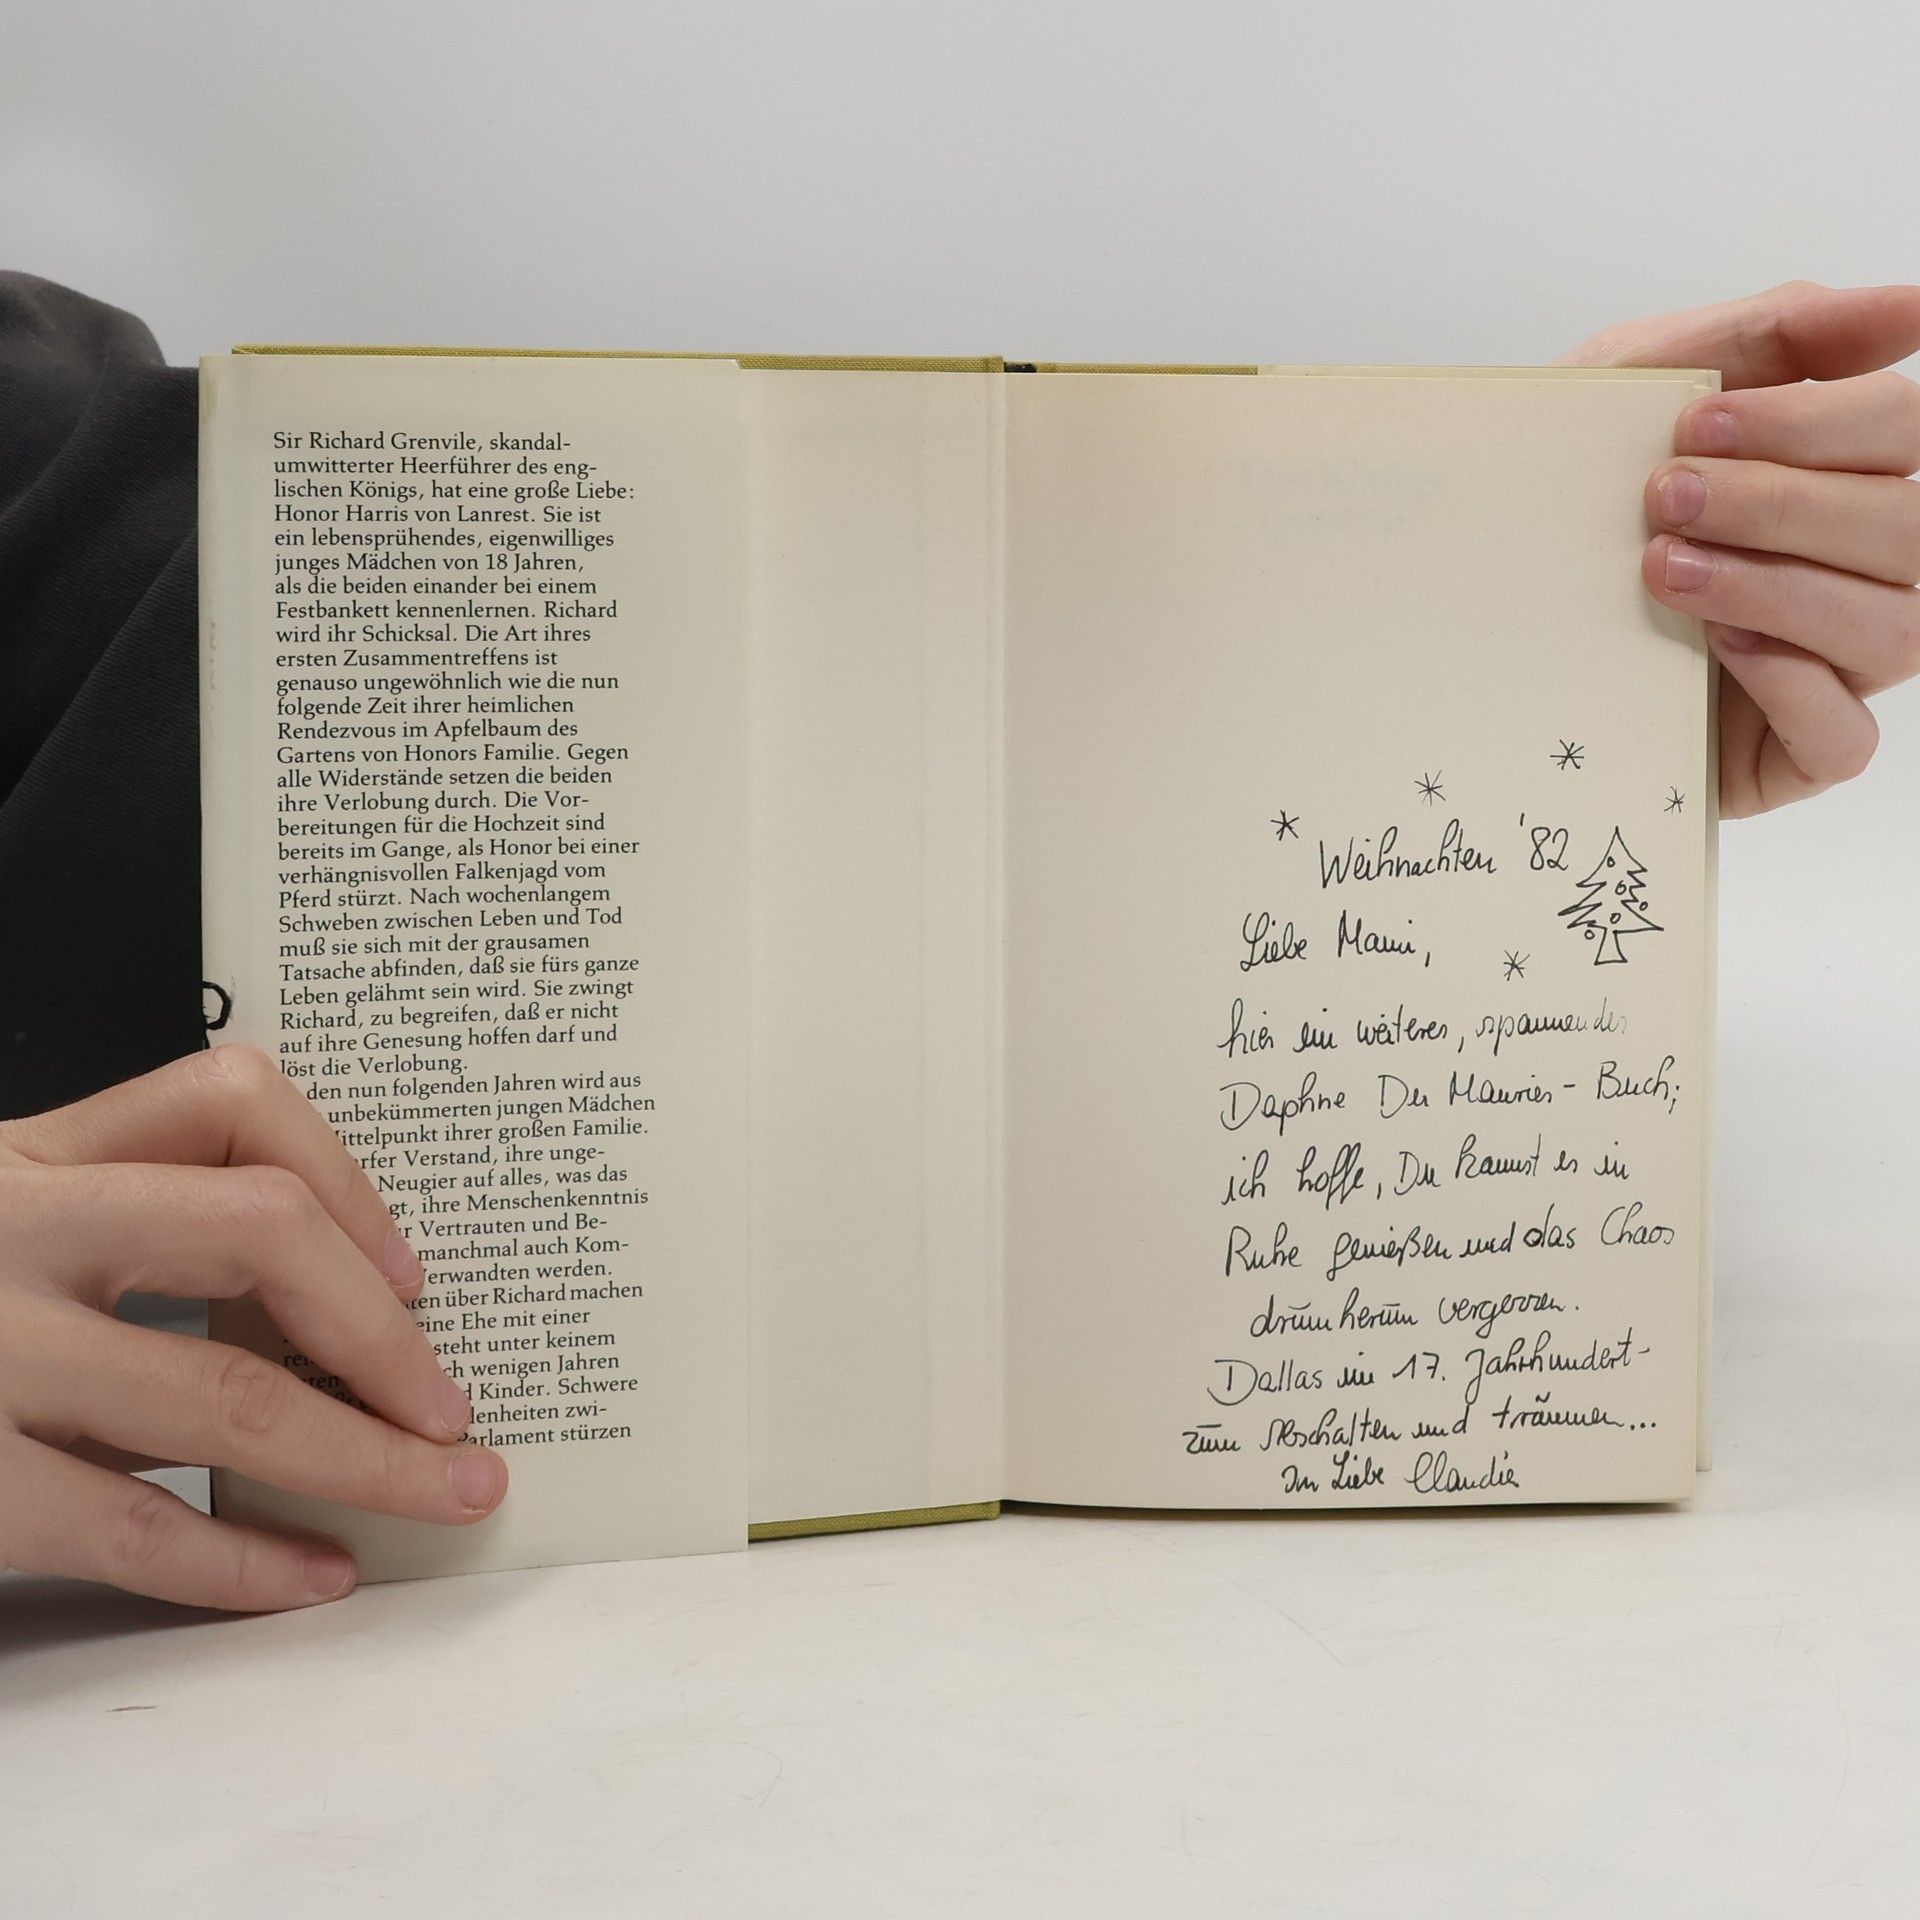 Sir Richard Grenvile, skandal-
umwitterter Heerführer des eng-
lischen Königs, hat eine große Liebe:
Honor Harris von Lanrest. Sie ist
ein lebensprühendes, eigenwilliges
junges Mädchen von 18 Jahren,
als die beiden einander bei einem
Festbankett kennenlernen. Richard
wird ihr Schicksal. Die Art ihres
ersten Zusammentreffens ist
genauso ungewöhnlich wie die nun
folgende Zeit ihrer heimlichen
Rendezvous im Apfelbaum des
Gartens von Honors Familie. Gegen
alle Widerstände setzen die beiden
ihre Verlobung durch. Die Vor-
bereitungen für die Hochzeit sind
bereits im Gange, als Honor bei einer
verhängnisvollen Falkenjagd vom
Pferd stürzt. Nach wochenlangem
Schweben zwischen Leben und Tod
muß sie sich mit der grausamen
Tatsache abfinden, daß sie fürs ganze
Leben gelähmt sein wird. Sie zwingt
Richard, zu begreifen, daß er nicht
auf ihre Genesung hoffen darf und
löst die Verlobung.
den nun folgenden Jahren wird aus
unbekümmerten jungen Mädchen
ittelpunkt ihrer großen Familie.
rfer Verstand, ihre unge-
Neugier auf alles, was das
gt, ihre Menschenkenntnis
r Vertrauten und Be-
manchmal auch Kom-
erwandten werden.
ten über Richard machen
eine Ehe mit einer
steht unter keinem
ch wenigen Jahren
d Kinder. Schwere
denheiten zwi-
Parlament stürzen
Weihnachten '82
Liebe Mami,
hier ein weiteres, spannendes
Daphne Du Maurier - Buch;
ich hoffe, Du kannst es in
Ruhe genießen und das Chaos
drumherum vergessen.
Dallas im 17. Jahrhundert-
zum Abschalten und träumen...
In Liebe Claudia